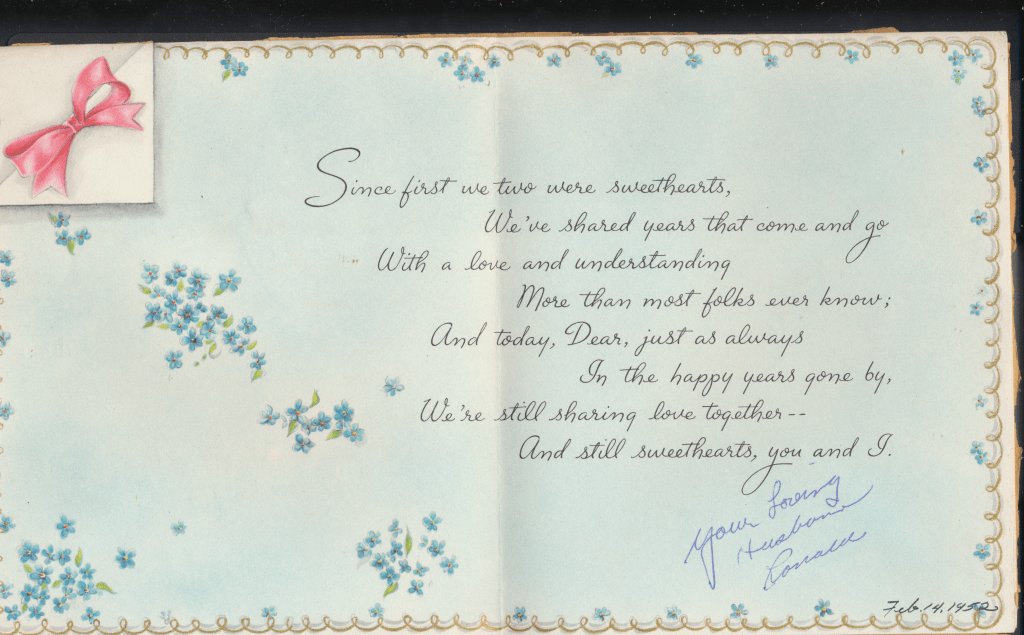 Since first we two were sweethearts,
We've shared years that come and go
With a love and understanding
More than most folks ever know;
And today, Dear, just as always
In the happy years gone by,
We're still sharing love together--
And still sweethearts, you and I.
Your Loving
Husband
Ronald
Feb. 14, 1952